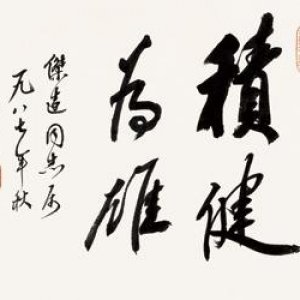 積健
為雄
傑造同志属
一九八七年秋